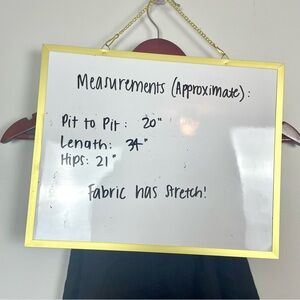 Measurements (Approximate):
Pit to Pit: 20"
Length: 34"
Hips: 21"
Fabric has stretch!